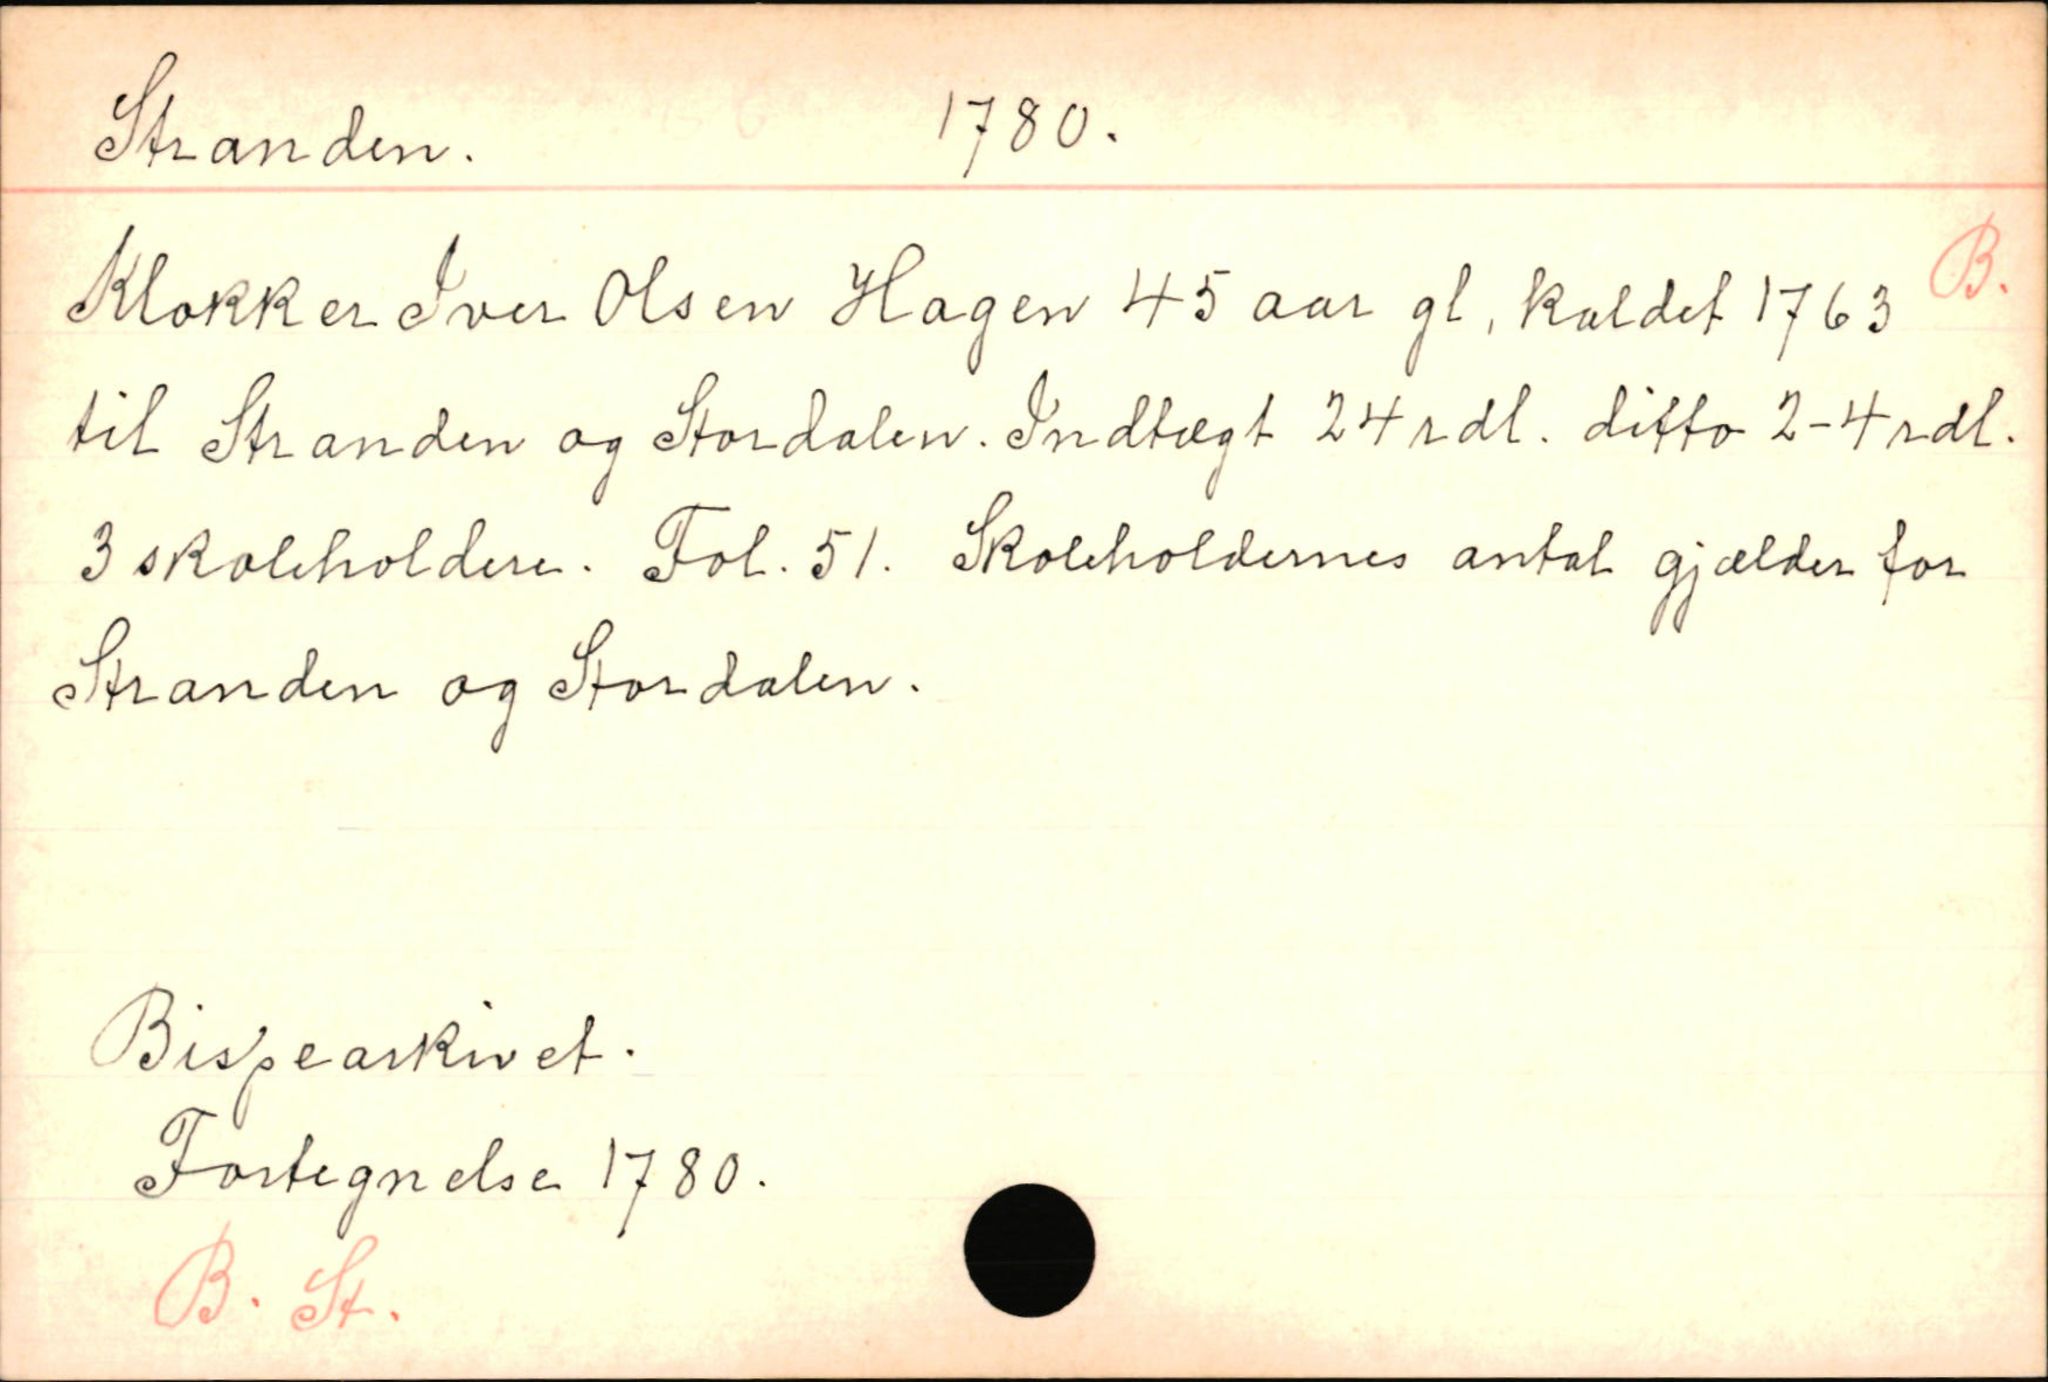 Stranden. 1780.
B.
Klokker Iver Olsen Hagen 45 aar gl, kaldet 1763
til Stranden og Stordalen. Indtægt 24 rdl. ditto 2-4 rdl.
3 skoleholdere. Fol. 51. Skoleholdernes antal gjælder for
Stranden og Stordalen.
Bispearkivet.
Fortegnelse 1780.
B. St.